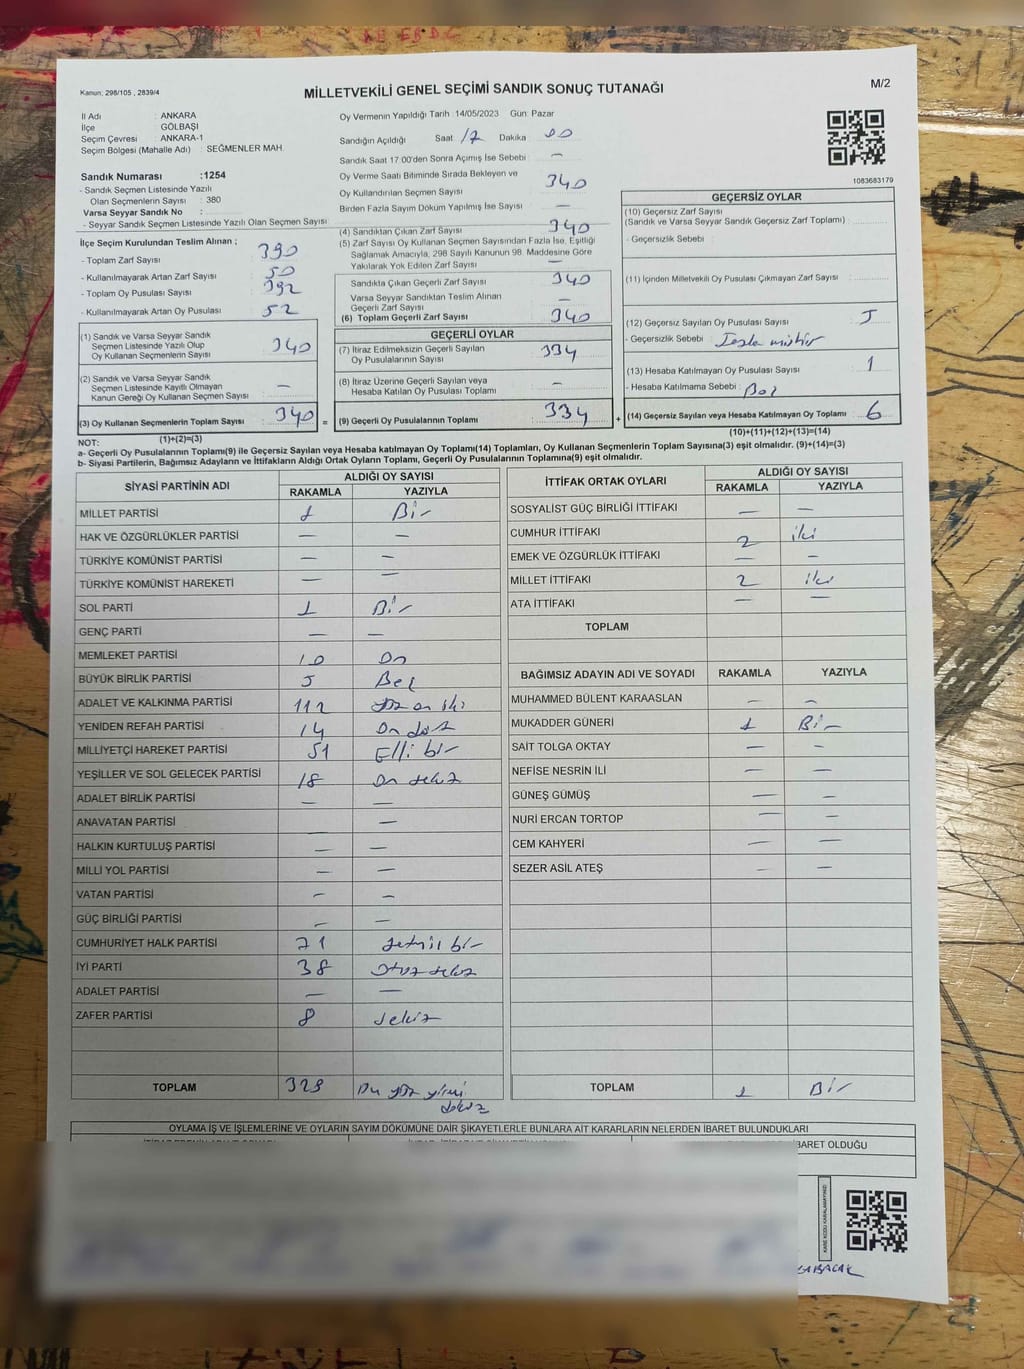 Kanun: 298/105 , 2839/4
MİLLETVEKİLİ GENEL SEÇİMİ SANDIK SONUÇ TUTANAĞI
M/2
İl Adı : ANKARA
İlçe : GÖLBAŞI
Seçim Çevresi : ANKARA-1
Seçim Bölgesi (Mahalle Adı) : SEĞMENLER MAH.
Oy Vermenin Yapıldığı Tarih :14/05/2023 Gün: Pazar
Sandığın Açıldığı Saat 17 Dakika 00
Sandık Saat 17:00'den Sonra Açımış İse Sebebi : —
Oy Verme Saati Bitiminde Sırada Bekleyen ve
Oy Kullandırılan Seçmen Sayısı : 340
Birden Fazla Sayım Döküm Yapılmış İse Sayısı : —
1083683179
Sandık Numarası :1254
- Sandık Seçmen Listesinde Yazılı
Olan Seçmenlerin Sayısı : 380
Varsa Seyyar Sandık No :
- Seyyar Sandık Seçmen Listesinde Yazılı Olan Seçmen Sayısı :
İlçe Seçim Kurulundan Teslim Alınan ;
- Toplam Zarf Sayısı : 390
- Kullanılmayarak Artan Zarf Sayısı : 50
- Toplam Oy Pusulası Sayısı : 392
- Kullanılmayarak Artan Oy Pusulası : 52
(1) Sandık ve Varsa Seyyar Sandık
Seçmen Listesinde Yazılı Olup
Oy Kullanan Seçmenlerin Sayısı : 340
(2) Sandık ve Varsa Seyyar Sandık
Seçmen Listesinde Kayıtlı Olmayan
Kanun Gereği Oy Kullanan Seçmen Sayısı : —
(3) Oy Kullanan Seçmenlerin Toplam Sayısı : 340 =
(1)+(2)=(3)
(4) Sandıktan Çıkan Zarf Sayısı : 340
(5) Zarf Sayısı Oy Kullanan Seçmen Sayısından Fazla İse, Eşitliği
Sağlamak Amacıyla, 298 Sayılı Kanunun 98. Maddesine Göre
Yakılarak Yok Edilen Zarf Sayısı : —
Sandıkta Çıkan Geçerli Zarf Sayısı : 340
Varsa Seyyar Sandıktan Teslim Alınan
Geçerli Zarf Sayısı : —
(6) Toplam Geçerli Zarf Sayısı : 340
GEÇERLİ OYLAR
(7) İtiraz Edilmeksizin Geçerli Sayılan
Oy Pusulalarının Sayısı : 334
(8) İtiraz Üzerine Geçerli Sayılan veya
Hesaba Katılan Oy Pusulası Sayısı : —
(9) Geçerli Oy Pusulalarının Toplamı : 334 +
GEÇERSİZ OYLAR
(10) Geçersiz Zarf Sayısı
(Sandık ve Varsa Seyyar Sandık Geçersiz Zarf Toplamı) :
- Geçersizlik Sebebi :
(11) İçinden Milletvekili Oy Pusulası Çıkmayan Zarf Sayısı :
(12) Geçersiz Sayılan Oy Pusulası Sayısı : 5
- Geçersizlik Sebebi :
(13) Hesaba Katılmayan Oy Pusulası Sayısı : 1
- Hesaba Katılmama Sebebi : Boş
(14) Geçersiz Sayılan veya Hesaba Katılmayan Oy Toplamı : 6
(10)+(11)+(12)+(13)=(14)
NOT:
a- Geçerli Oy Pusulalarının Toplamı(9) ile Geçersiz Sayılan veya Hesaba katılmayan Oy Toplamı(14) Toplamları, Oy Kullanan Seçmenlerin Toplam Sayısına(3) eşit olmalıdır. (9)+(14)=(3)
b- Siyasi Partilerin, Bağımsız Adayların ve İttifakların Aldığı Ortak Oyların Toplamı, Geçerli Oy Pusulalarının Toplamına(9) eşit olmalıdır.
SİYASİ PARTİNİN ADI ALDIĞI OY SAYISI
RAKAMLA YAZIYLA
MİLLET PARTİSİ 1 Bir
HAK VE ÖZGÜRLÜKLER PARTİSİ — —
TÜRKİYE KOMÜNİST PARTİSİ — —
TÜRKİYE KOMÜNİST HAREKETİ — —
SOL PARTİ 1 Bir
GENÇ PARTİ — —
MEMLEKET PARTİSİ 10 On
BÜYÜK BİRLİK PARTİSİ 5 Beş
ADALET VE KALKINMA PARTİSİ 112 Yüz on iki
YENİDEN REFAH PARTİSİ 14 On dört
MİLLİYETÇİ HAREKET PARTİSİ 51 Elli bir
YEŞİLLER VE SOL GELECEK PARTİSİ 18 On sekiz
ADALET BİRLİK PARTİSİ — —
ANAVATAN PARTİSİ —
HALKIN KURTULUŞ PARTİSİ — —
MİLLİ YOL PARTİSİ — —
VATAN PARTİSİ — —
GÜÇ BİRLİĞİ PARTİSİ — —
CUMHURİYET HALK PARTİSİ 71 Yetmiş bir
İYİ PARTİ 38 Otuz sekiz
ADALET PARTİSİ — —
ZAFER PARTİSİ 8 Sekiz
TOPLAM 329 Üç yüz yirmi
dokuz
İTTİFAK ORTAK OYLARI ALDIĞI OY SAYISI
RAKAMLA YAZIYLA
SOSYALİST GÜÇ BİRLİĞİ İTTİFAKI — —
CUMHUR İTTİFAKI 2 iki
EMEK VE ÖZGÜRLÜK İTTİFAKI — —
MİLLET İTTİFAKI 2 iki
ATA İTTİFAKI — —
TOPLAM
BAĞIMSIZ ADAYIN ADI VE SOYADI RAKAMLA YAZIYLA
MUHAMMED BÜLENT KARAASLAN — —
MUKADDER GÜNERİ 1 Bir
SAİT TOLGA OKTAY — —
NEFİSE NESRİN İLİ — —
GÜNEŞ GÜMÜŞ — —
NURİ ERCAN TORTOP — —
CEM KAHYERİ — —
SEZER ASİL ATEŞ — —
TOPLAM 1 Bir
OYLAMA İŞ VE İŞLEMLERİNE VE OYLARIN SAYIM DÖKÜMÜNE DAİR ŞİKAYETLERLE BUNLARA AİT KARARLARIN NELERDEN İBARET BULUNDUKLARI
İBARET OLDUĞU
KARE KODU KARALAMAYINIZ!